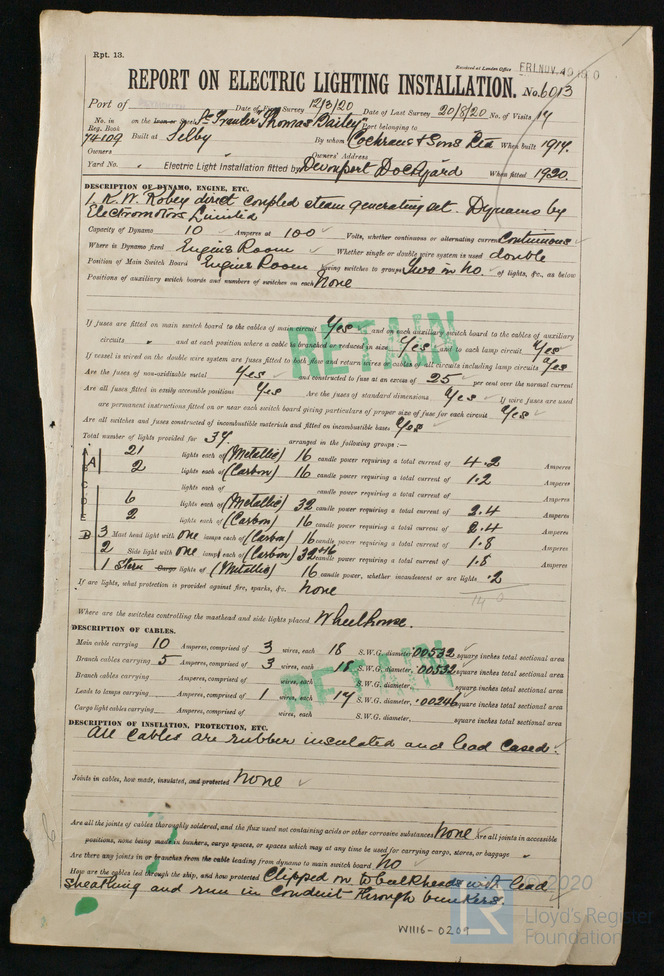 Rpt. 13.
Received at London Office FRI. NOV. 19 1920
REPORT ON ELECTRIC LIGHTING INSTALLATION. No. 6013
Port of Date of First Survey 12/3/20 Date of Last Survey 20/8/20 No. of Visits 14
No. in Reg. Book on the Iron or Steel "Thomas Bailey" Port belonging to
74109 Built at Selby By whom Cochrane & Sons Ltd When built 1917.
Owners Owners' Address
Yard No. Electric Light Installation fitted by Devonport Dockyard When fitted 1920.
DESCRIPTION OF DYNAMO, ENGINE, ETC.
1. K.W. Robey direct coupled steam generating set. Dynamo by
Electromotors Limited
Capacity of Dynamo 10 Amperes at 100 Volts, whether continuous or alternating current Continuous
Where is Dynamo fixed Engine Room Whether single or double wire system is used double
Position of Main Switch Board Engine Room having switches to groups Two in No. of lights, &c., as below
Positions of auxiliary switch boards and numbers of switches on each None
RETAIN
If fuses are fitted on main switch board to the cables of main circuit Yes and on each auxiliary switch board to the cables of auxiliary
circuits " and at each position where a cable is branched or reduced in size Yes and to each lamp circuit Yes
If vessel is wired on the double wire system are fuses fitted to both flow and return wires of cables of all circuits including lamp circuits Yes
Are the fuses of non-oxidizable metal Yes and constructed to fuse at an excess of 25 per cent over the normal current
Are all fuses fitted in easily accessible positions Yes Are the fuses of standard dimensions Yes If wire fuses are used
are permanent instructions fitted on or near each switch board giving particulars of proper size of fuse for each circuit Yes
Are all switches and fuses constructed of incombustible materials and fitted on incombustible bases Yes
Total number of lights provided for 37 arranged in the following groups :—
A 21 lights each of (Metallic) 16 candle power requiring a total current of 4.2 Amperes
2 lights each of (Carbon) 16 candle power requiring a total current of 1.2 Amperes
C lights each of candle power requiring a total current of Amperes
D 6 lights each of (Metallic) 32 candle power requiring a total current of 2.4 Amperes
E 2 lights each of (Carbon) 16 candle power requiring a total current of 2.4 Amperes
B 3 Mast head light with one lamps each of (Carbon) 16 candle power requiring a total current of 1.8 Amperes
2 Side light with one lamps each of (Carbon) 32 candle power requiring a total current of 1.8 Amperes
1 Stern Cargo lights of (Metallic) 16 candle power, whether incandescent or arc lights .2
If arc lights, what protection is provided against fire, sparks, &c. None
14 0
Where are the switches controlling the masthead and side lights placed Wheelhouse.
DESCRIPTION OF CABLES.
Main cable carrying 10 Amperes, comprised of 3 wires, each 18 S.W.G. diameter, .00532 square inches total sectional area
Branch cables carrying 5 Amperes, comprised of 3 wires, each 18 S.W.G. diameter, .00532 square inches total sectional area
Branch cables carrying Amperes, comprised of wires, each S.W.G. diameter, square inches total sectional area
Leads to lamps carrying Amperes, comprised of 1 wires, each 17 S.W.G. diameter, .00246 square inches total sectional area
Cargo light cables carrying Amperes, comprised of wires, each S.W.G. diameter, square inches total sectional area
RETAIN
DESCRIPTION OF INSULATION, PROTECTION, ETC.
All cables are rubber insulated and lead cased.
Joints in cables, how made, insulated, and protected None
Are all the joints of cables thoroughly soldered, and the flux used not containing acids or other corrosive substances None Are all joints in accessible
positions, none being made in bunkers, cargo spaces, or spaces which may at any time be used for carrying cargo, stores, or baggage "
Are there any joints in or branches from the cable leading from dynamo to main switch board No
How are the cables led through the ship, and how protected Clipped on to bulkheads with lead
sheathing and run in conduit through bunkers.
© 2020
LR
Lloyd's Register
Foundation
W1116-0209